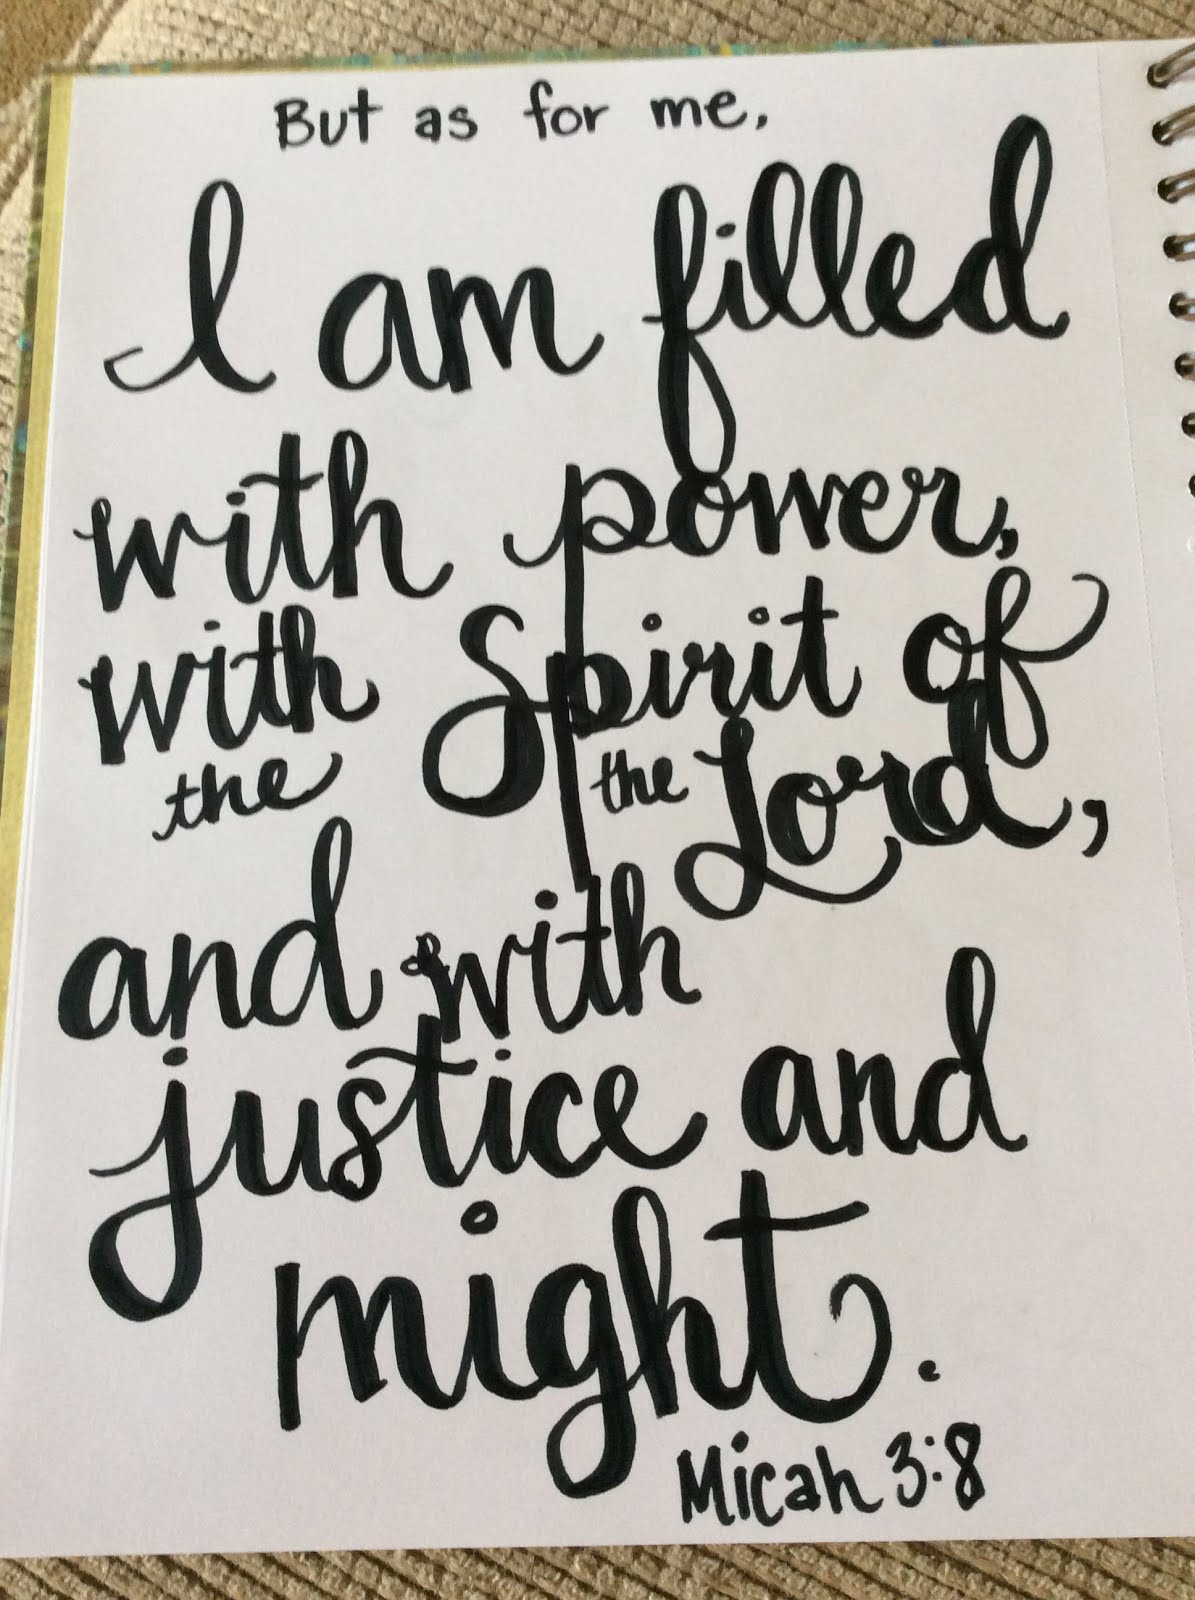 But as for me,
I am filled
with power,
with the Spirit of
the Lord,
and with
justice and
might.
Micah 3:8